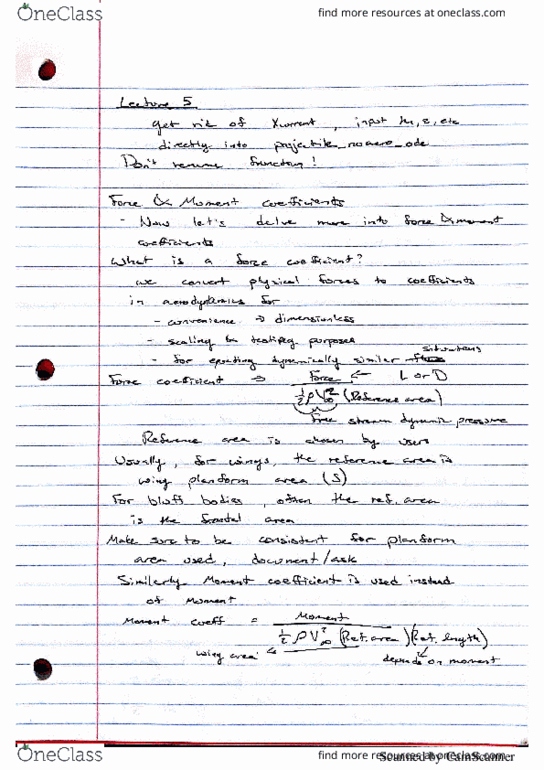 OneClass
find more resources at oneclass.com
Lecture 5
get rid of Xcurrent, input m, e, etc
directly into projectile_noaero_ode
Don't rename function!
Force & Moment coefficients
- Now let's delve more into force & moment
coefficients
What is a force coefficient?
we convert physical forces to coefficients
in aerodynamics for
- convenience → dimensionless
- scaling & testing purposes
- for equating dynamically similar situations
Force coefficient ⇒ Force ← L or D
½ρV∞² (Reference area)
Free stream dynamic pressure
Reference area is chosen by users
Usually, for wings, the reference area is
wing planform area (S)
For bluff bodies, often the ref. area
is the frontal area
Make sure to be consistent for planform
area used, document/ask
Similarly Moment coefficient is used instead
of Moment
Moment coeff = Moment
½ρV∞² (Ref. area)(Ref. length)
wing area
depends on moment
OneClass
find more resources at oneclass.com
Scanned by CamScanner